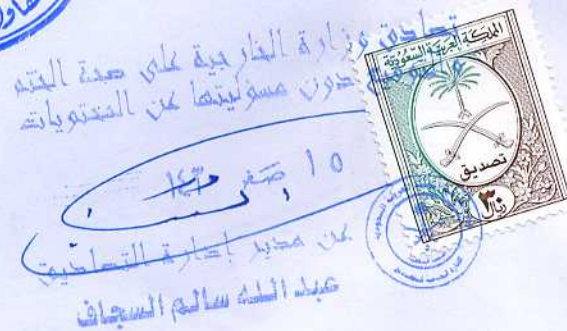 تصادق وزارة الخارجية على صحة الختم
والتوقيع دون مسؤليتها عن المحتويات
١٥ صفر
عن مدير إدارة التصاديق
عبد الله سالم السجاف
المملكة العربية السعودية
تصديق
٣
ريال